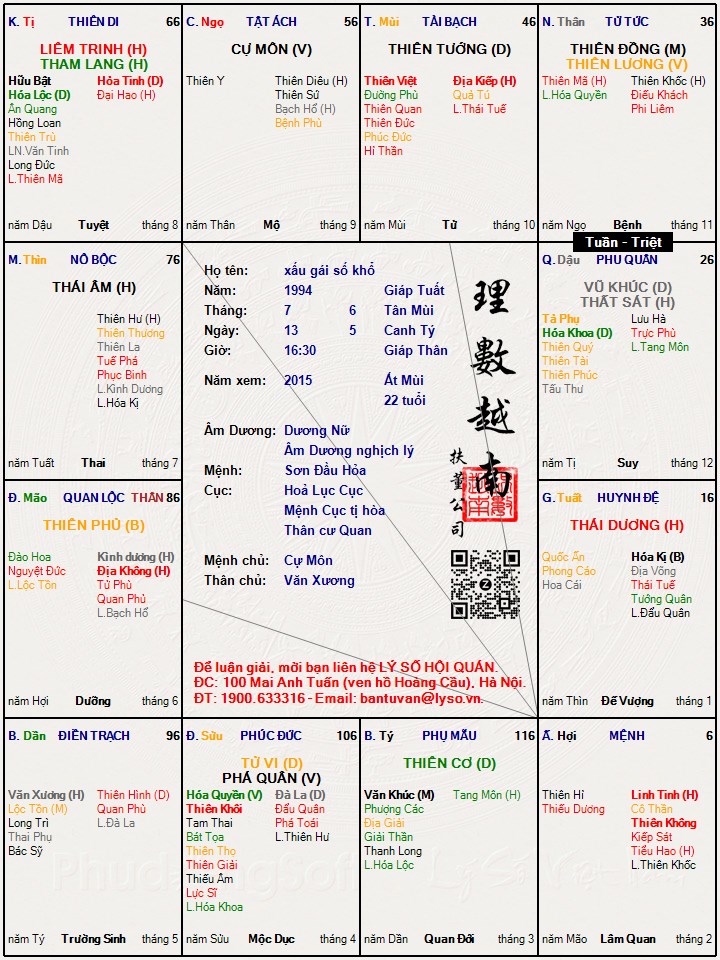 K. Tị THIÊN DI 66
LIÊM TRINH (H)
THAM LANG (H)
Hữu Bật Hỏa Tinh (D)
Hóa Lộc (D) Đại Hao (H)
Ân Quang
Hồng Loan
Thiên Trù
LN.Văn Tinh
Long Đức
L.Thiên Mã
năm Dậu Tuyệt tháng 8
C. Ngọ TẬT ÁCH 56
CỰ MÔN (V)
Thiên Y Thiên Diêu (H)
Thiên Sứ
Bạch Hổ (H)
Bệnh Phù
năm Thân Mộ tháng 9
T. Mùi TÀI BẠCH 46
THIÊN TƯỚNG (D)
Thiên Việt Địa Kiếp (H)
Đường Phù Quả Tú
Thiên Quan L.Thái Tuế
Thiên Đức
Phúc Đức
Hỉ Thần
năm Mùi Tử tháng 10
N. Thân TỬ TỨC 36
THIÊN ĐỒNG (M)
THIÊN LƯƠNG (V)
Thiên Mã (H) Thiên Khốc (H)
L.Hóa Quyền Điếu Khách
Phi Liêm
năm Ngọ Bệnh tháng 11
Tuần - Triệt
M. Thìn NÔ BỘC 76
THÁI ÂM (H)
Thiên Hư (H)
Thiên Thương
Thiên La
Tuế Phá
Phục Binh
L.Kình Dương
L.Hóa Kị
năm Tuất Thai tháng 7
Họ tên: xấu gái số khổ
Năm: 1994 Giáp Tuất
Tháng: 7 6 Tân Mùi
Ngày: 13 5 Canh Tý
Giờ: 16:30 Giáp Thân
Năm xem: 2015 Ất Mùi
22 tuổi
Âm Dương: Dương Nữ
Âm Dương nghịch lý
Mệnh: Sơn Đầu Hỏa
Cục: Hoả Lục Cục
Mệnh Cục tị hòa
Thân cư Quan
Mệnh chủ: Cự Môn
Thân chủ: Văn Xương
理數越南
扶董公司
Để luận giải, mời bạn liên hệ LÝ SỐ HỘI QUÁN.
ĐC: 100 Mai Anh Tuấn (ven hồ Hoàng Cầu), Hà Nội.
ĐT: 1900.633316 - Email: bantuvan@lyso.vn.
Q. Dậu PHU QUÂN 26
VŨ KHÚC (D)
THẤT SÁT (H)
Tả Phụ Lưu Hà
Hóa Khoa (D) Trực Phù
Thiên Quý L.Tang Môn
Thiên Tài
Thiên Phúc
Tấu Thư
năm Tị Suy tháng 12
Đ. Mão QUAN LỘC THÂN 86
THIÊN PHỦ (B)
Đào Hoa Kình dương (H)
Nguyệt Đức Địa Không (H)
L.Lộc Tồn Tử Phù
Quan Phủ
L.Bạch Hổ
năm Hợi Dưỡng tháng 6
G. Tuất HUYNH ĐỆ 16
THÁI DƯƠNG (H)
Quốc Ấn Hóa Kị (B)
Phong Cáo Địa Võng
Hoa Cái Thái Tuế
Tướng Quân
L.Đẩu Quân
năm Thìn Đế Vượng tháng 1
B. Dần ĐIỀN TRẠCH 96
Văn Xương (H) Thiên Hình (D)
Lộc Tồn (M) Quan Phù
Long Trì L.Đà La
Thai Phụ
Bác Sỹ
năm Tý Trường Sinh tháng 5
Đ. Sửu PHÚC ĐỨC 106
TỬ VI (D)
PHÁ QUÂN (V)
Hóa Quyền (V) Đà La (D)
Thiên Khôi Đẩu Quân
Tam Thai Phá Toái
Bát Tọa L.Thiên Hư
Thiên Thọ
Thiên Giải
Thiếu Âm
Lực Sĩ
L.Hóa Khoa
năm Sửu Mộc Dục tháng 4
B. Tý PHỤ MẪU 116
THIÊN CƠ (D)
Văn Khúc (M) Tang Môn (H)
Phượng Các
Địa Giải
Giải Thần
Thanh Long
L.Hóa Lộc
năm Dần Quan Đới tháng 3
Ấ. Hợi MỆNH 6
Thiên Hỉ Linh Tinh (H)
Thiếu Dương Cô Thần
Thiên Không
Kiếp Sát
Tiểu Hao (H)
L.Thiên Khốc
năm Mão Lâm Quan tháng 2